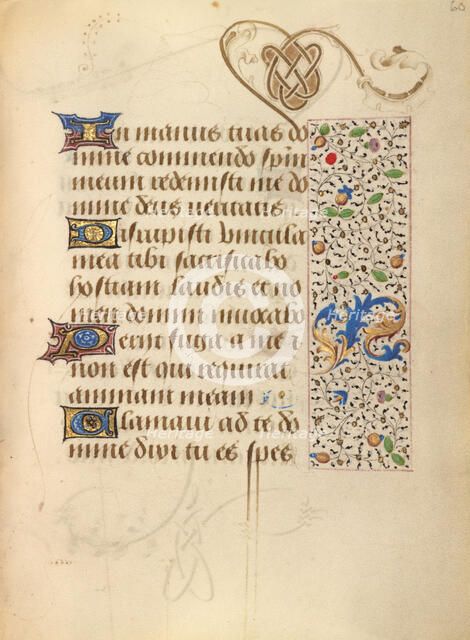 60
In manus tuas do
mine commendo spm
meum redemisti me do
mine deus veritatis
Disrupisti vincula
mea tibi sacrificabo
hostiam laudis et no
men domini invocabo
Periit fuga a me et
non est qui requirat
animam meam
Clamavi ad te do
mine dixi tu es spes